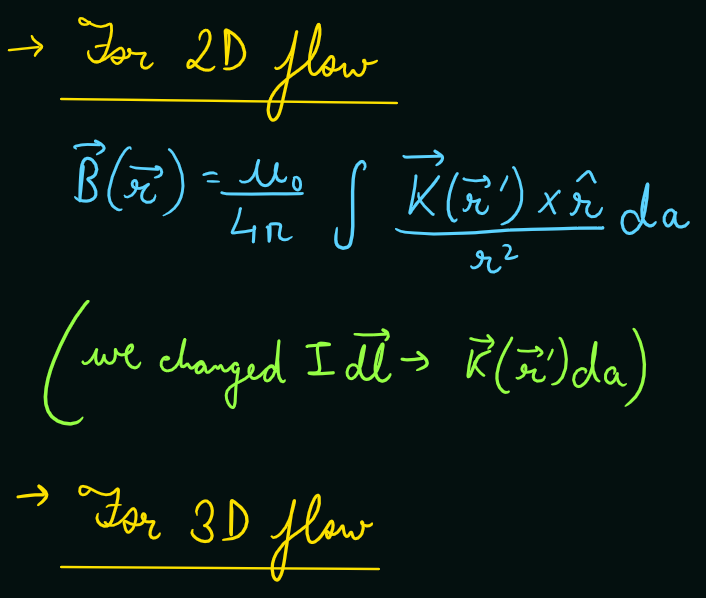 → For 2D flow
$\vec{B}(\vec{r}) = \frac{\mu_0}{4\pi} \int \frac{\vec{K}(\vec{r}') \times \hat{r}}{r^2} da$
(we changed I $\vec{dl}$ → $\vec{K}(\vec{r}')da$)
→ For 3D flow